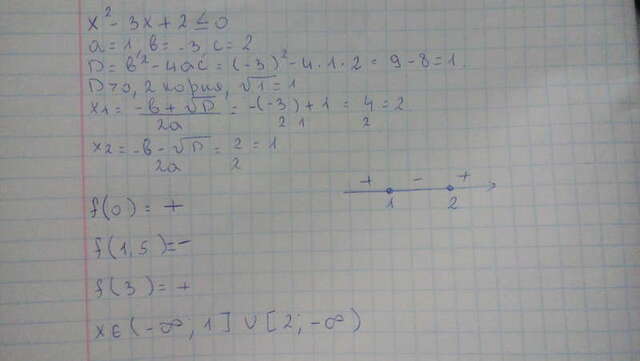 x² - 3x + 2 ≤ 0
a = 1, в = -3 c = 2
D = в² - 4ac = (-3)² - 4 · 1 · 2 = 9 - 8 = 1.
D > 0, 2 корня, √1 = 1
x₁ = (-в + √D)/2a = (-(-3) + 1)/(2 1) = 4/2 = 2
x₂ = (-в - √D)/2a = 2/2 = 1
+ - +
1 2
f(0) = +
f(1,5) = -
f(3) = +
x ∈ (-∞; 1] ∪ [2; -∞)